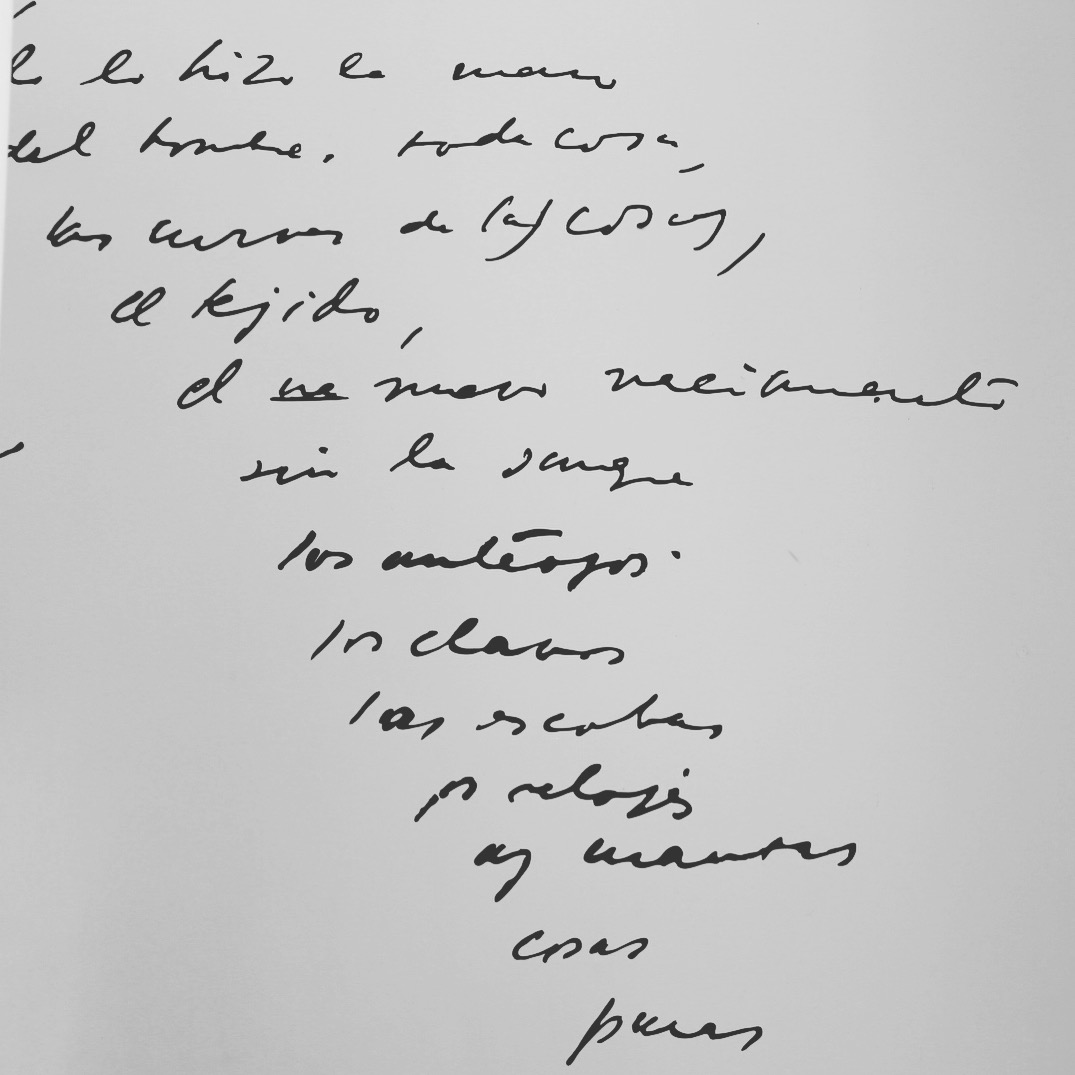 lo hizo la mano
del hombre, toda cosa,
las curvas de las cosas,
el tejido,
el nuevo nacimiento
sin la sangre
los anteojos
los clavos
las escobas
los relojes
las mantas
cosas
puras